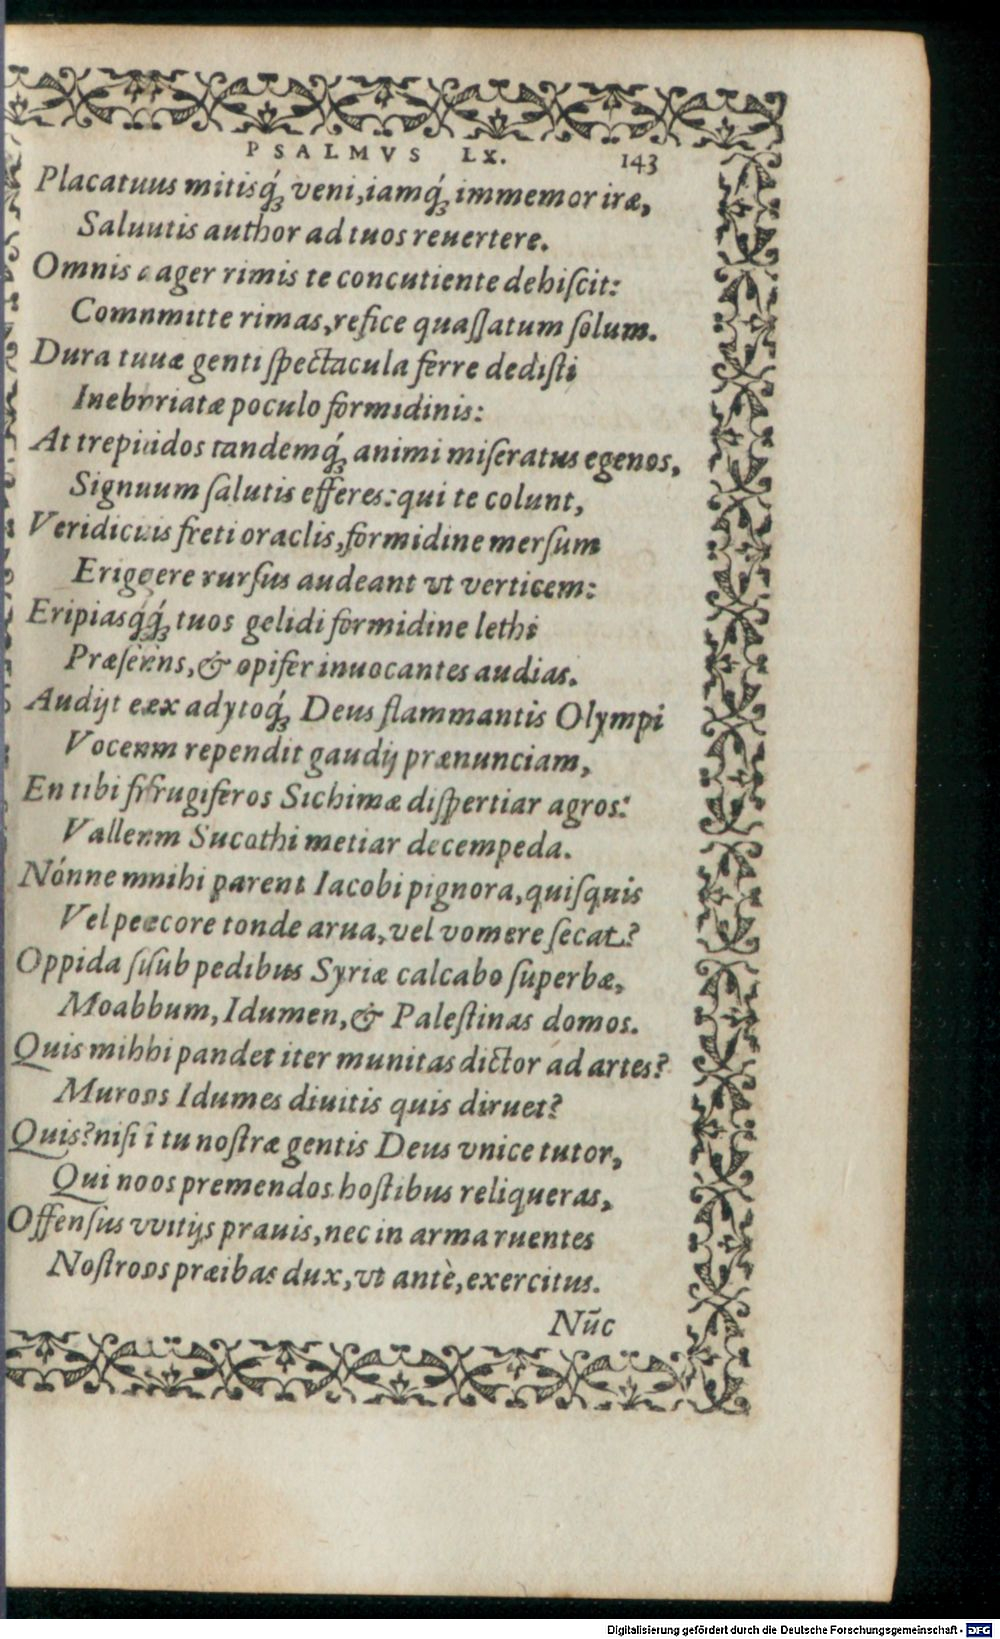 PSALMVS LX. 143
Placatuus mitisq́ꝫ veni, iamq́ꝫ immemor iræ,
Saluutis author ad tuos reuertere.
Omnis ager rimis te concutiente dehiſcit:
Comnmitte rimas, refice quaſſatum ſolum.
Dura tuuæ genti ſpectacula ferre dediſti
Inebrriatæ poculo formidinis:
At trepiidos tandemq́ꝫ animi miſeratus egenos,
Signuum ſalutis efferes: qui te colunt,
Veridicuis freti oraclis, formidine merſum
Erigere rurſus audeant vt verticem:
Eripiasq́q́ꝫ tuos gelidi formidine lethi
Præſenns, & opifer inuocantes audias.
Audijt eex adytoq́ꝫ Deus flammantis Olympi
Vocemm rependit gaudij prænunciam,
En tibi frfrugiferos Sichimæ diſpertiar agros:
Vallemm Sucothi metiar decempeda.
Nónne mnihi parent Iacobi pignora, quiſquis
Vel peecore tonde arua, vel vomere ſecat?
Oppida ſuſub pedibus Syriæ calcabo ſuperbæ,
Moabbum, Idumen, & Paleſtinas domos.
Quis mihhi pandet iter munitas dictor ad artes?
Muroos Idumes diuitis quis diruet?
Quis? niſi i tu noſtræ gentis Deus vnice tutor,
Qui noos premendos hoſtibus reliqueras,
Offenſus vvitijs prauis, nec in arma ruentes
Noſtroos præibas dux, vt antè, exercitus.
Nūc
Digitalisierung gefördert durch die Deutsche Forschungsgemeinschaft - DFG